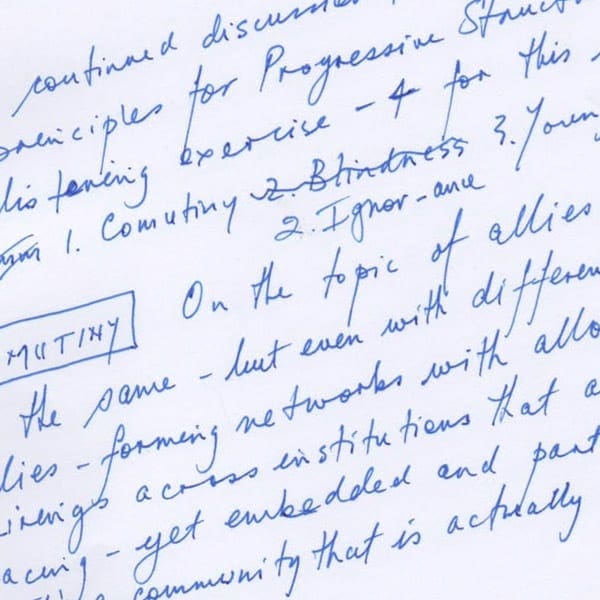 continued discussion
principles for Progressive Struct
listening exercise - 4 for this
1. Comutiny 2. Blindness 3. Youn
2. Ignor-ance
MUTINY On the topic of allies
the same - but even with differen
lies - forming networks with allo
across institutions that a
acing - yet embedded and part
community that is actually